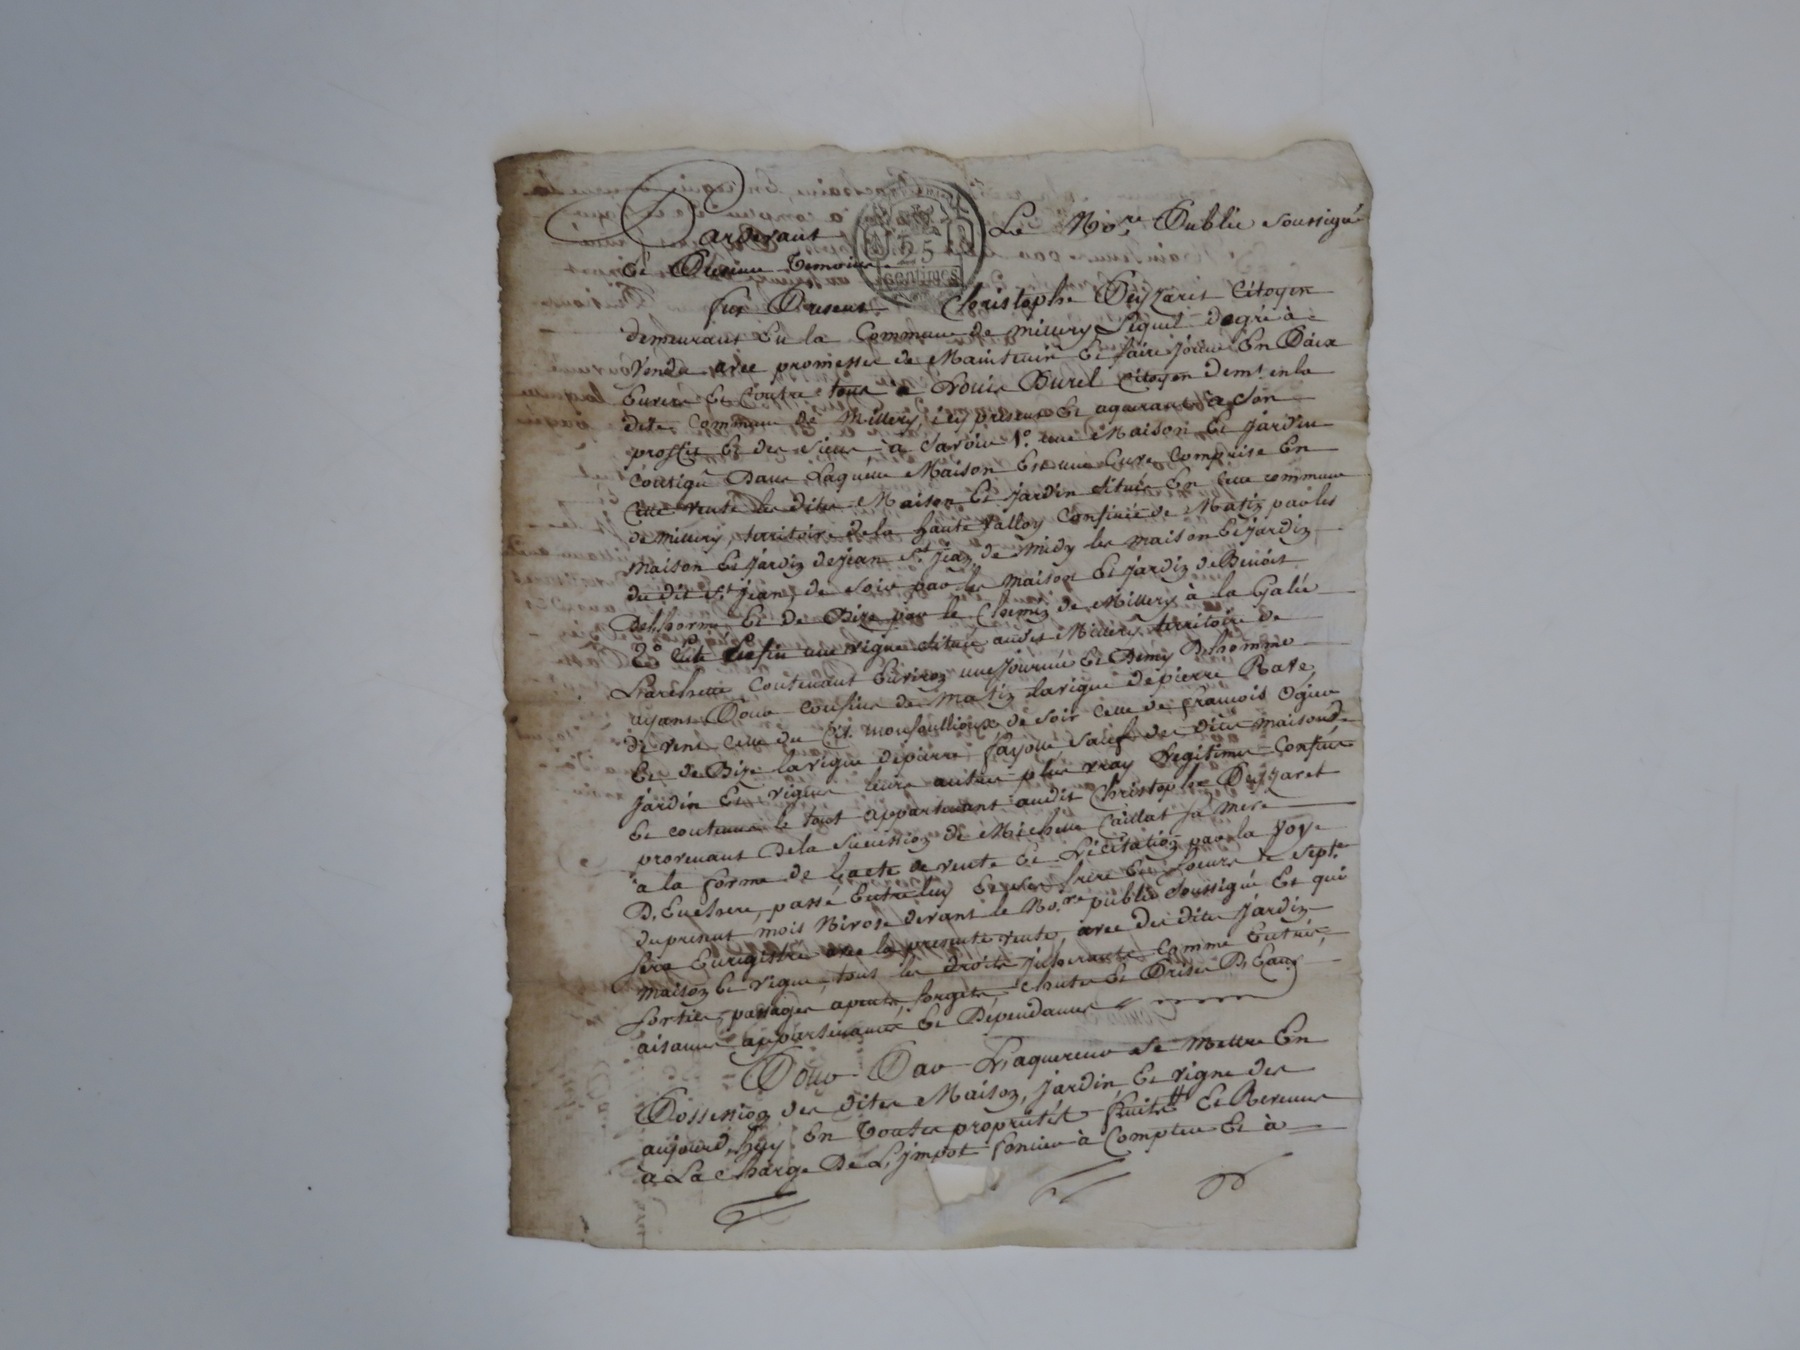 Pardevant Le No.re Public soussigné
Et Presence Temoins
25
centimes
fut Present Christophe Deyzaret Citoyen
demeurant En la Commune de millery Lequel de gré à
Vendu avec promesse de Maintenir Et faire jouir En Paix
Envers Et Contre tous a Louis Burel Citoyen demt. en la
dite Commune de Millery, icy present Et aquerant a son
proffit Et des siens, a Savoir 1.° une Maison Et Jardin
Contigu Dans Laquelle Maison Est une Cuve Comprise En
Cette Vente les dites Maison Et jardin situés En lieu commune
de millery, territoire de la haute Valloy Confinée de Matin par les
maison Et Jardin de jean St. jean de midy les maison Et jardin
du dit St. jean, de soir par les maison Et jardin de Benoit
Delhorme Et de Bize par le Chemin de Millery à la Galée
2.° Et Enfin une vigne située audit Millery territoire de
contenant Environ une journée Et Demy D'homme
ayant Pour confins de Matin la vigne de pierre Rave,
de vent Celle du Cit. de soir Celle de francois Ogier
Et de Bize la vigne de pierre fayolle sauf des dites maison
jardin Et vigne leurs autres plus vray Legitimes Confins
Et contenue le tout appartenant audit Christophe Deyzaret
provenant De la Succession de Michelle Caillat sa Mere
a la forme de L'acte de vente Et Licitation par la voye
D'Enchere, passé Entre luy Et ses frere Et soeurs le sept.e
du present mois Nivose devant le No.re public soussigné Et qui
sera Enregistré avec la presente vente, avec des dites Jardin
maison Et vigne, tous les droits jnherants Comme Entrées,
sorties, passages apents, forgets, chutes Et Prises D'Eaux
aisances appartenances Et Dépendances
Pour Par L'aquereur se Mettre En
Possession des dites Maison, jardin, Et vigne des
aujourd'huy En Toutes proprietés fruits Et Revenus
a La Charge De L'jmpot foncier à Compter Et à